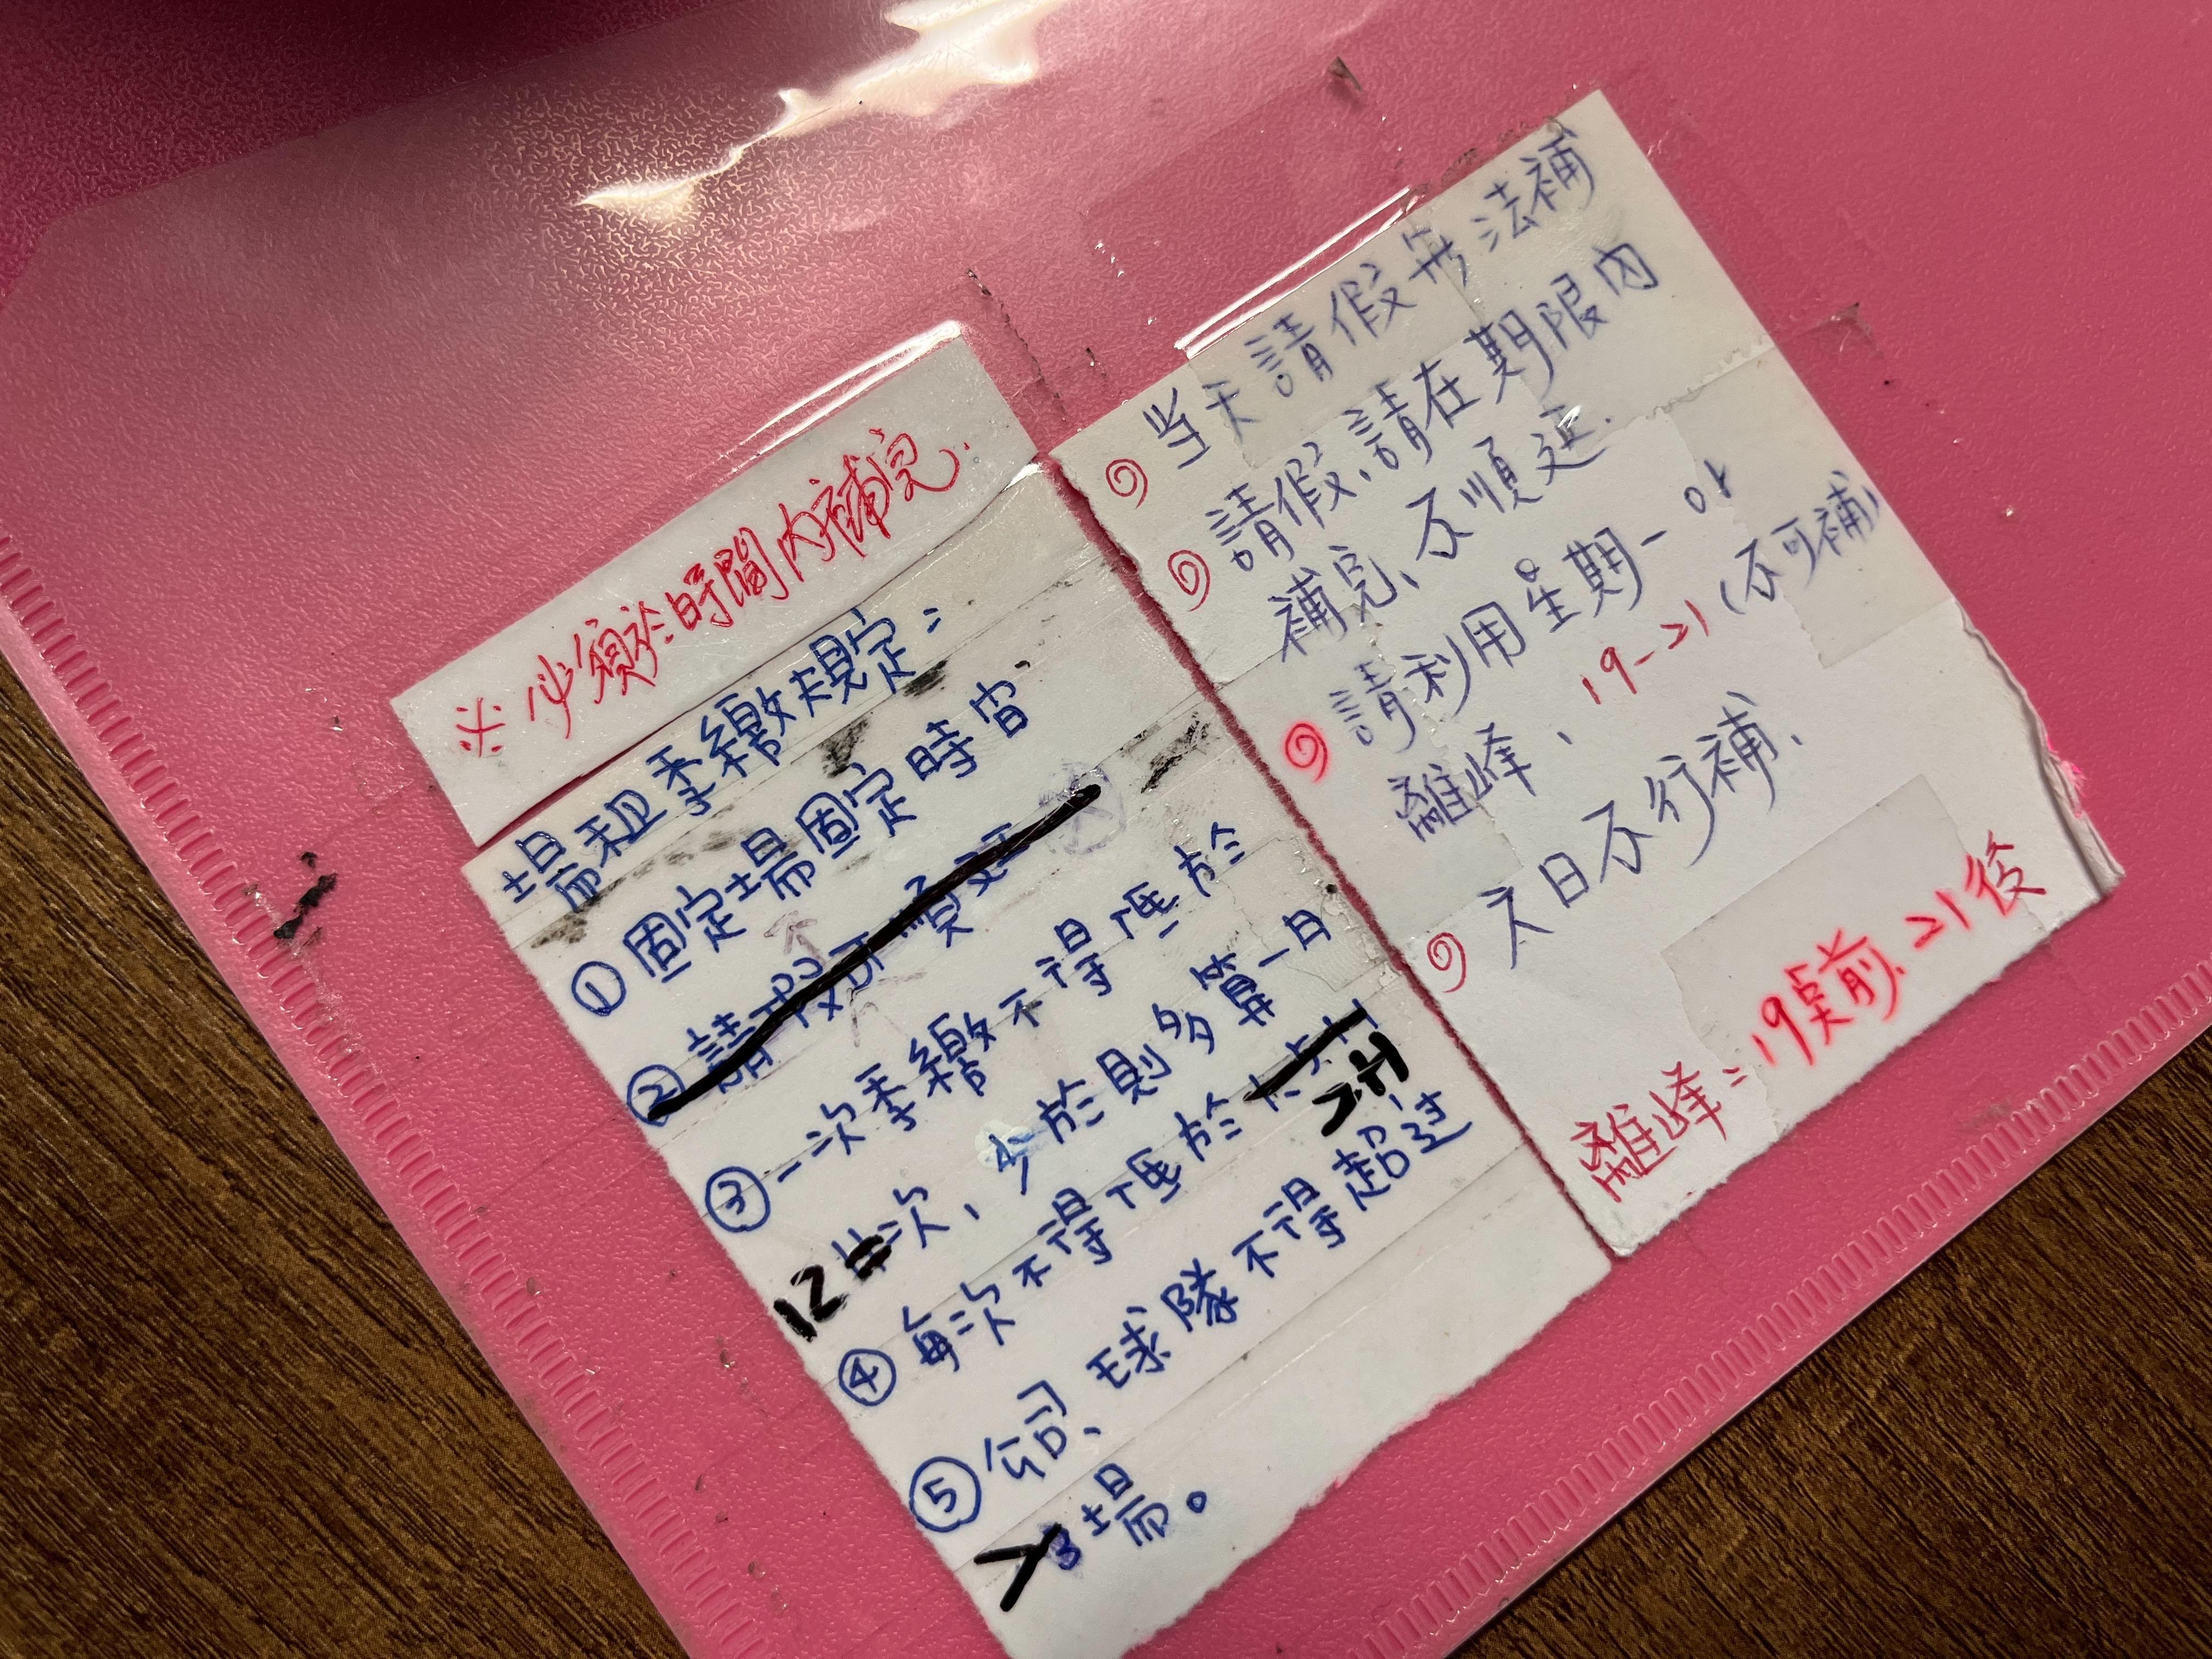 ※必須於時間內補完.
場租季繳規定：
①固定場固定時间、
②請假可順延
③一次季繳不得低於
12次，少於則多算一月
④每次不得低於 2H
⑤公司、球隊不得超过
場。
当天請假無法補
請假、請在期限內
補完、不順延.
請利用星期一 or
離峰、19-21(不可補)
六日不行補、
離峰=19点前、21後